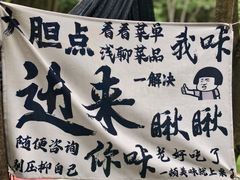 大胆点
看看菜单
浅聊菜品
我咔
一解决
进来
瞅瞅
随便咨询
别压抑自己
你咔
老好吃了
一顿美味端上来了